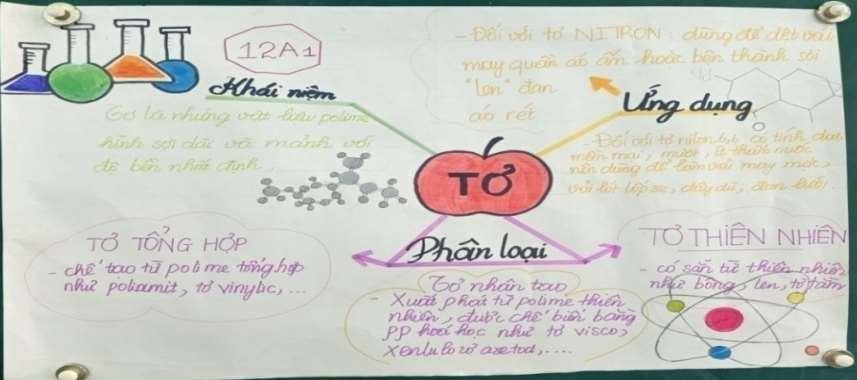 12A1
Khái niệm
Tơ là những vật liệu polime
hình sợi dài và mảnh với
độ bền nhất định
- Đối với tơ NITRON: dùng để dệt vải
may quần áo ấm hoặc bện thành sợi
"len" đan
áo rét
Ứng dụng
- Đối với tơ nilon 6,6 có tính dai
mềm mại, mượt, ít thấm nước
nên dùng để làm vải may mặc,
vải lót lốp xe, dây dù, đan lưới...
TƠ
Phân loại
TƠ TỔNG HỢP
- chế tạo từ polime tổng hợp
như poliamit, tơ vinylic,...
Tơ nhân tạo
- Xuất phát từ polime thiên
nhiên, được chế biến bằng
pp hoá học như tơ visco,
xenlulozơ axetat,....
TƠ THIÊN NHIÊN
- có sẵn từ thiên nhiên
như bông, len, tơ tằm